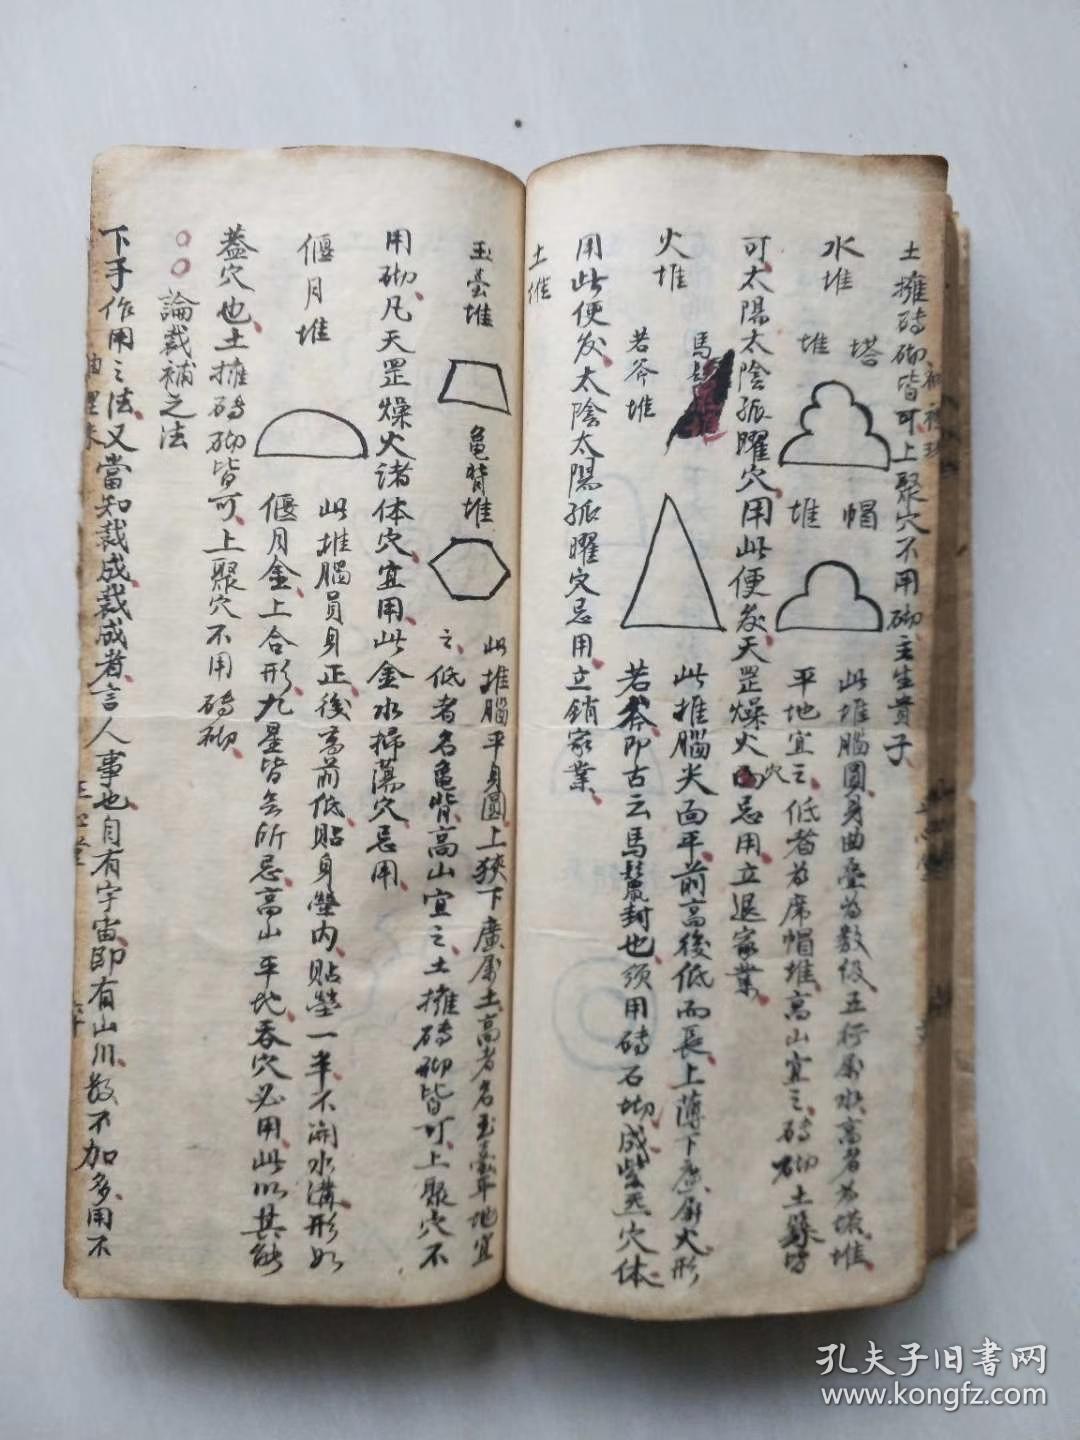 土擁磚砌皆可上聚穴不用砌主生貴子
水堆
塔堆
帽堆
此堆腦圓身曲疊為數級五行屬水高者為塔堆
平地宜之低者為席帽堆高山宜之磚砌土築皆
可太陽太陰孤曜穴用此便發天罡燥火穴忌用立退家業
火堆
馬
若斧堆
此堆腦尖面平前高後低而長上薄下廣屬火形
若斧即古云馬鬣封也須用磚石坳成紫炁穴体
用此便發太陰太陽孤曜穴忌用立銷家業
土堆
玉臺堆
龜背堆
此堆腦平身圓上狹下廣屬土高者名玉臺平地宜
之低者名龜背高山宜之土擁磚砌皆可上聚穴不
用砌凡天罡燥火諸体穴宜用此金水掃蕩穴忌用
偃月堆
此堆腦員身正後高前低貼身塋內貼塋一半不開水溝形如
偃月金上合形九星皆無所忌高山平地吞穴必用此以其能
蓋穴也土擁磚砌皆可上聚穴不用磚砌
○○論裁補之法
下手作用之法又當知裁成裁成者言人事也自有宇宙即有山川數不加多用不
孔夫子旧書网
www.kongfz.com